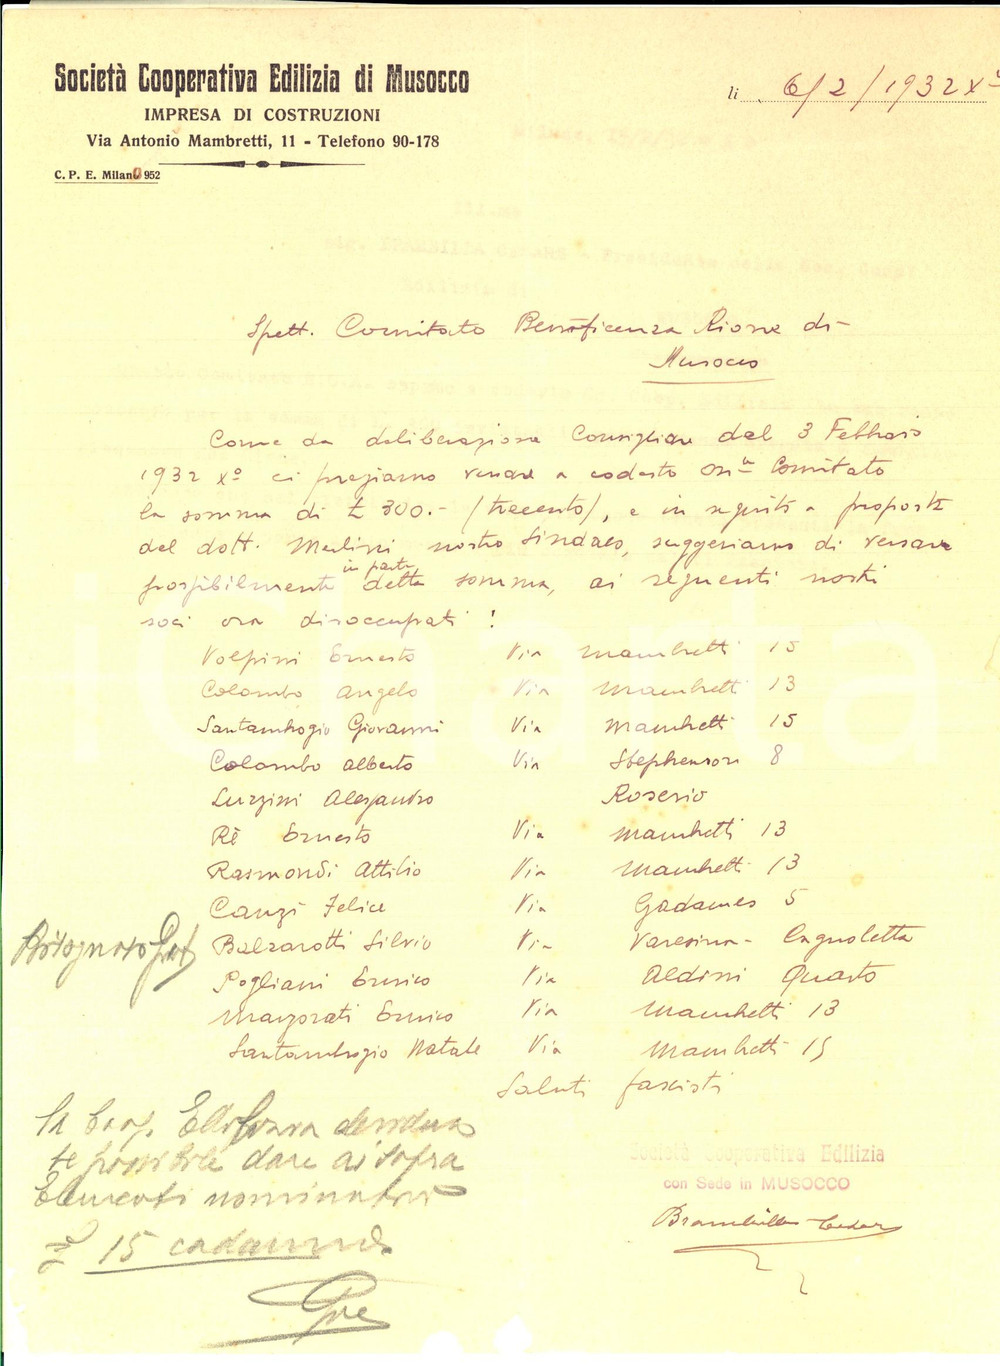 Società Cooperativa Edilizia di Musocco
IMPRESA DI COSTRUZIONI
Via Antonio Mambretti, 11 - Telefono 90-178
C. P. E. Milano 952
li 6/2/1932 Xº
Spett. Comitato Beneficenza Rione di
Musocco
Come da deliberazione Consigliare del 3 Febbraio
1932 Xº ci pregiamo versare a codesto On. Comitato
la somma di £ 300.- (trecento), e in seguito a proposta
del dott. Merlini nostro Sindaco, suggeriamo di versare
possibilmente in parte detta somma, ai seguenti nostri
soci ora disoccupati :
Volpini Ernesto Via Mambretti 15
Colombo Angelo Via Mambretti 13
Santambrogio Giovanni Via Mambretti 15
Colombo Alberto Via Stephenson 8
Luzzini Alessandro Roserio
Rè Ernesto Via Mambretti 13
Rasmondi Attilio Via Mambretti 13
Canzi Felice Via Gadames 5
Balzarotti Silvio Via Varesina - Cagnoletta
Pogliani Enrico Via Aldini Quarto
Marzorati Enrico Via Mambretti 13
Santambrogio Natale Via Mambretti 15
Saluti fascisti
Bisognoso
la Coop. Edilizia
se possibile dare ai sopra
Elementi nominativi
£ 15 cadauno
Società Cooperativa Edilizia
con Sede in MUSOCCO
Brambilla Cesare